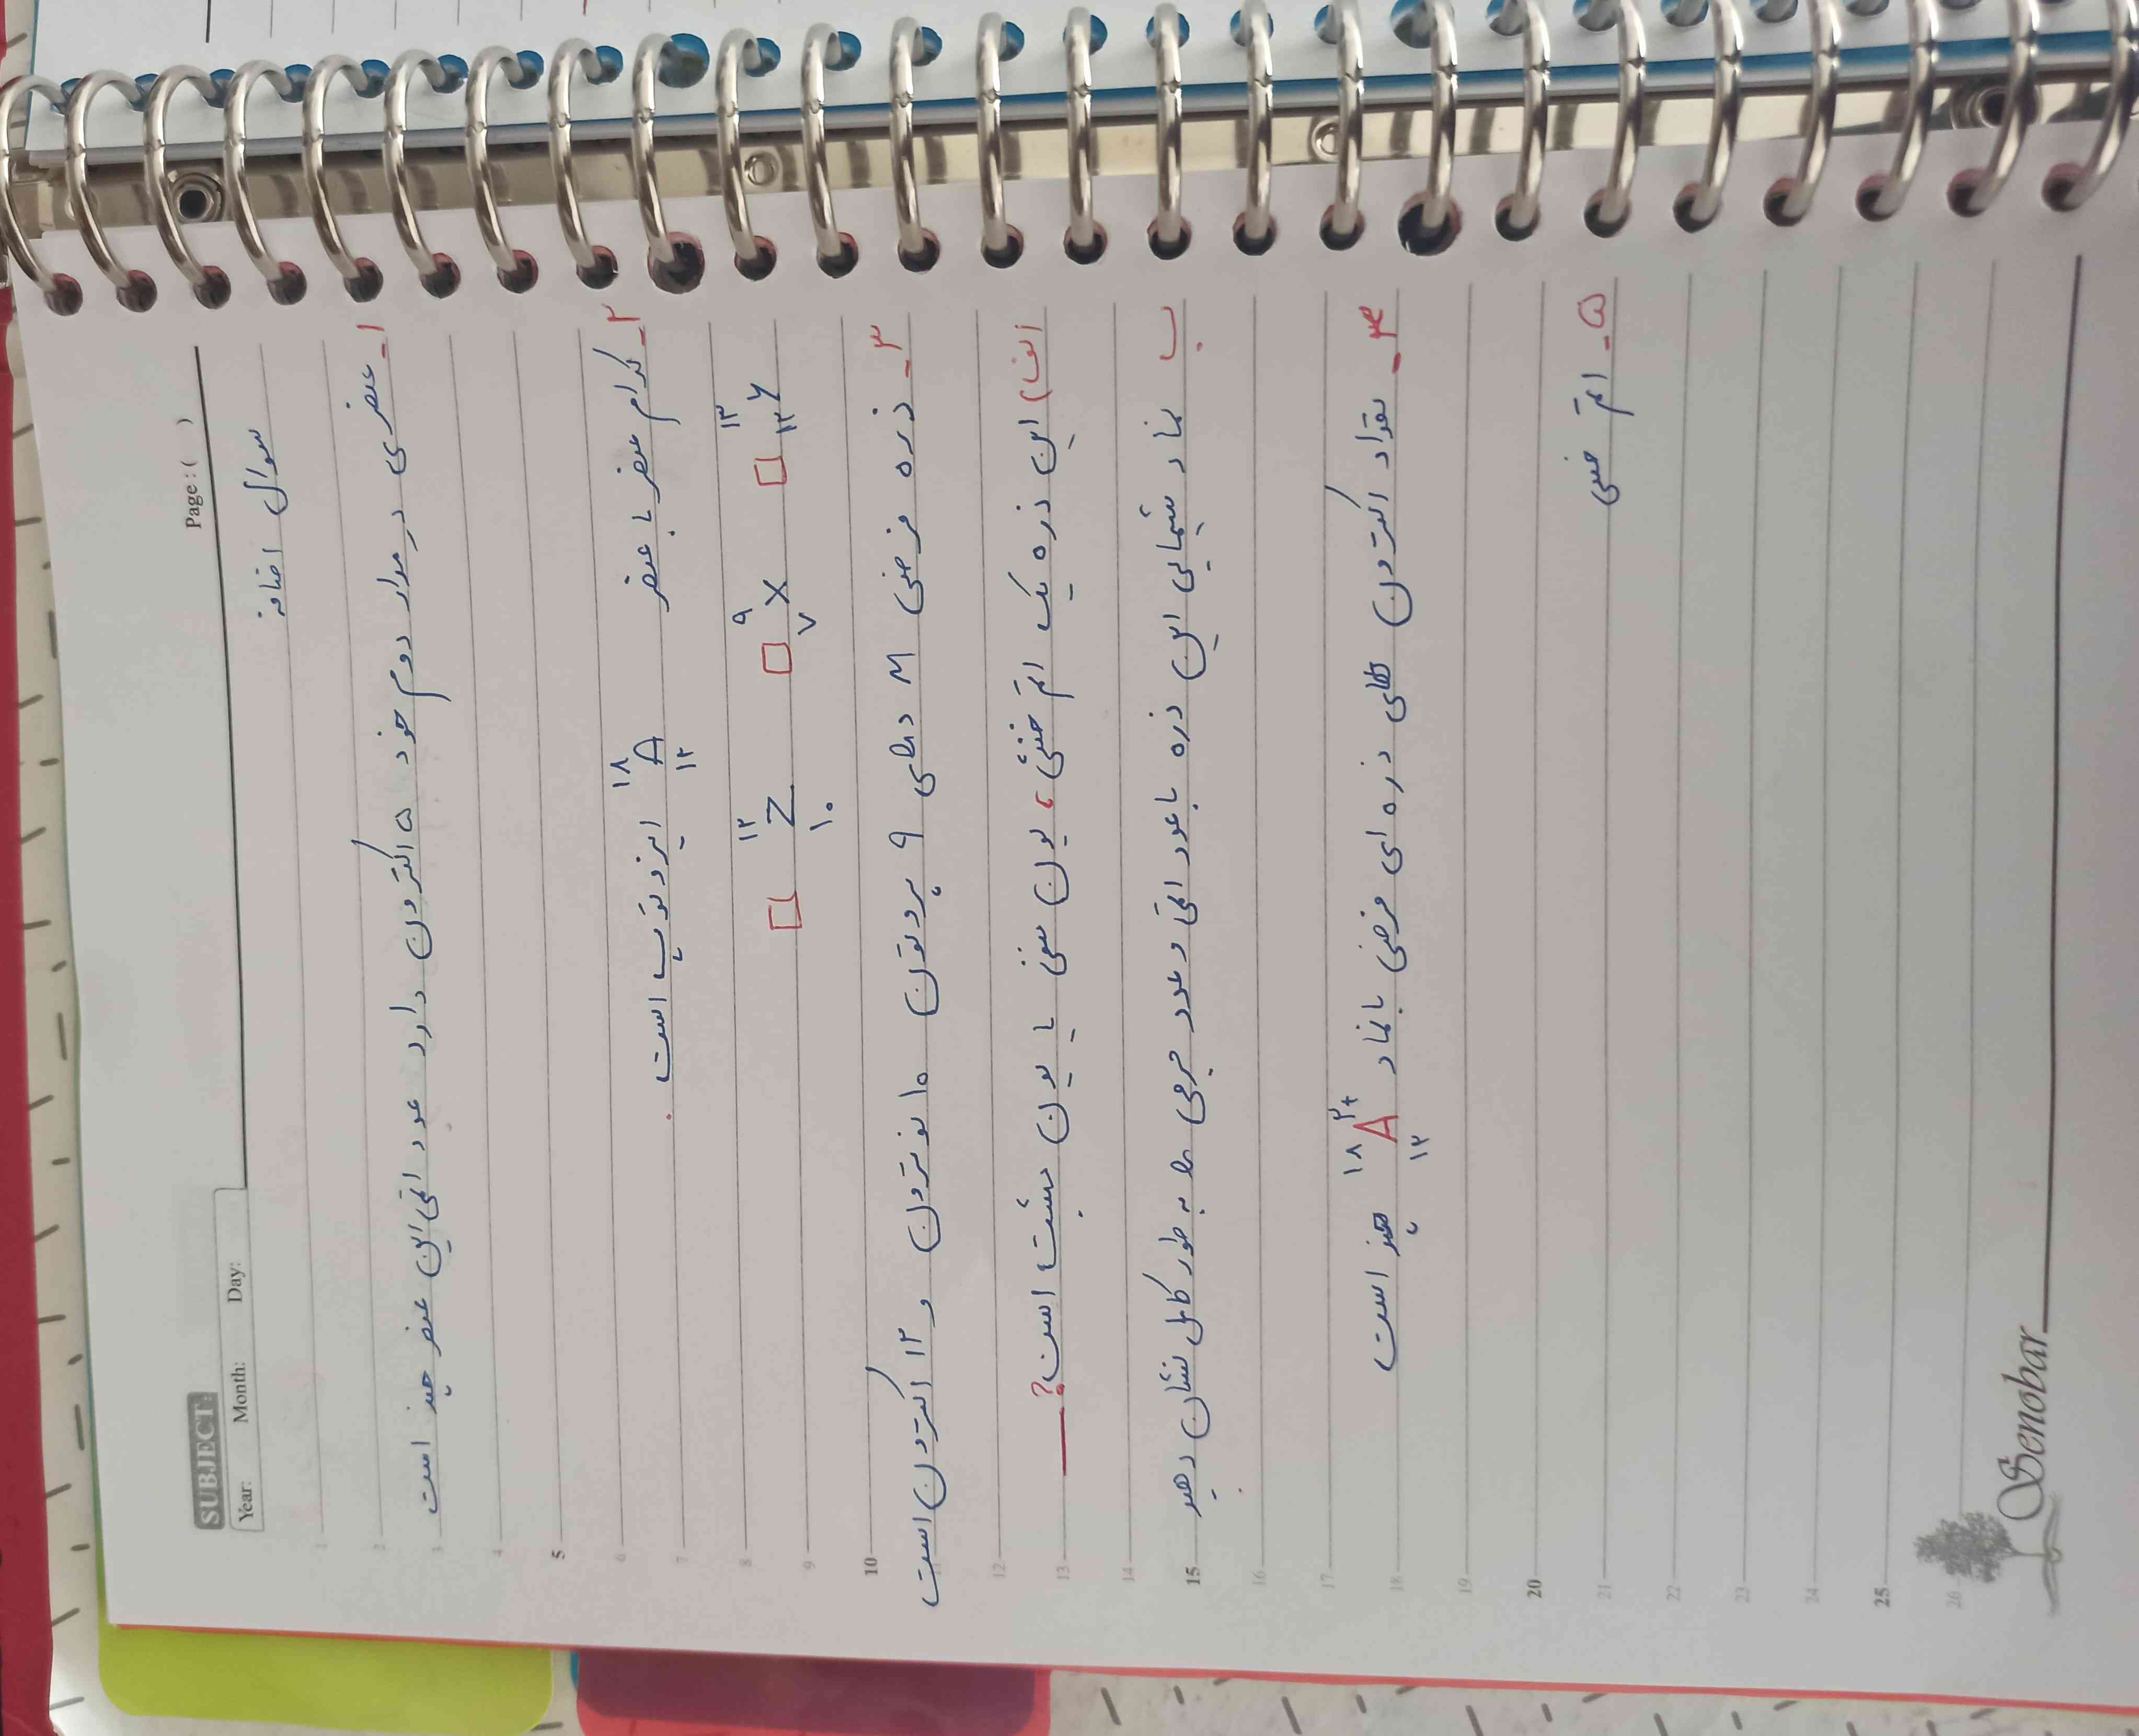 SUBJECT:
Year: Month: Day:
Page: ( )
سوال اضافه
۱- عنصری در مدار دوم خود ۵ الکترون دارد عدد اتمی این عنصر چند است
۲- کدام عنصر با عنصر ¹⁸₁₂A ایزوتوپ است.
□ ¹³₁₂Y □ ⁹₇X □ ¹²₁₀Z
۳- ذره فرضی M دارای ۹ پروتون ۱۰ نوترون و ۱۲ الکترون است
الف) این ذره یک اتم خنثی، یون منفی یا یون مثبت است؟
ب نماد شیمیایی این ذره با عدد اتمی و عدد جرمی به طور کامل نشان دهید
۴- تعداد الکترون های ذره ای فرضی با نماد ¹⁸₁₂A²⁺ چند است
۵- اتم خنثی
1
2
3
4
5
6
7
8
9
10
11
12
13
14
15
16
17
18
19
20
21
22
23
24
25
26
Senobar